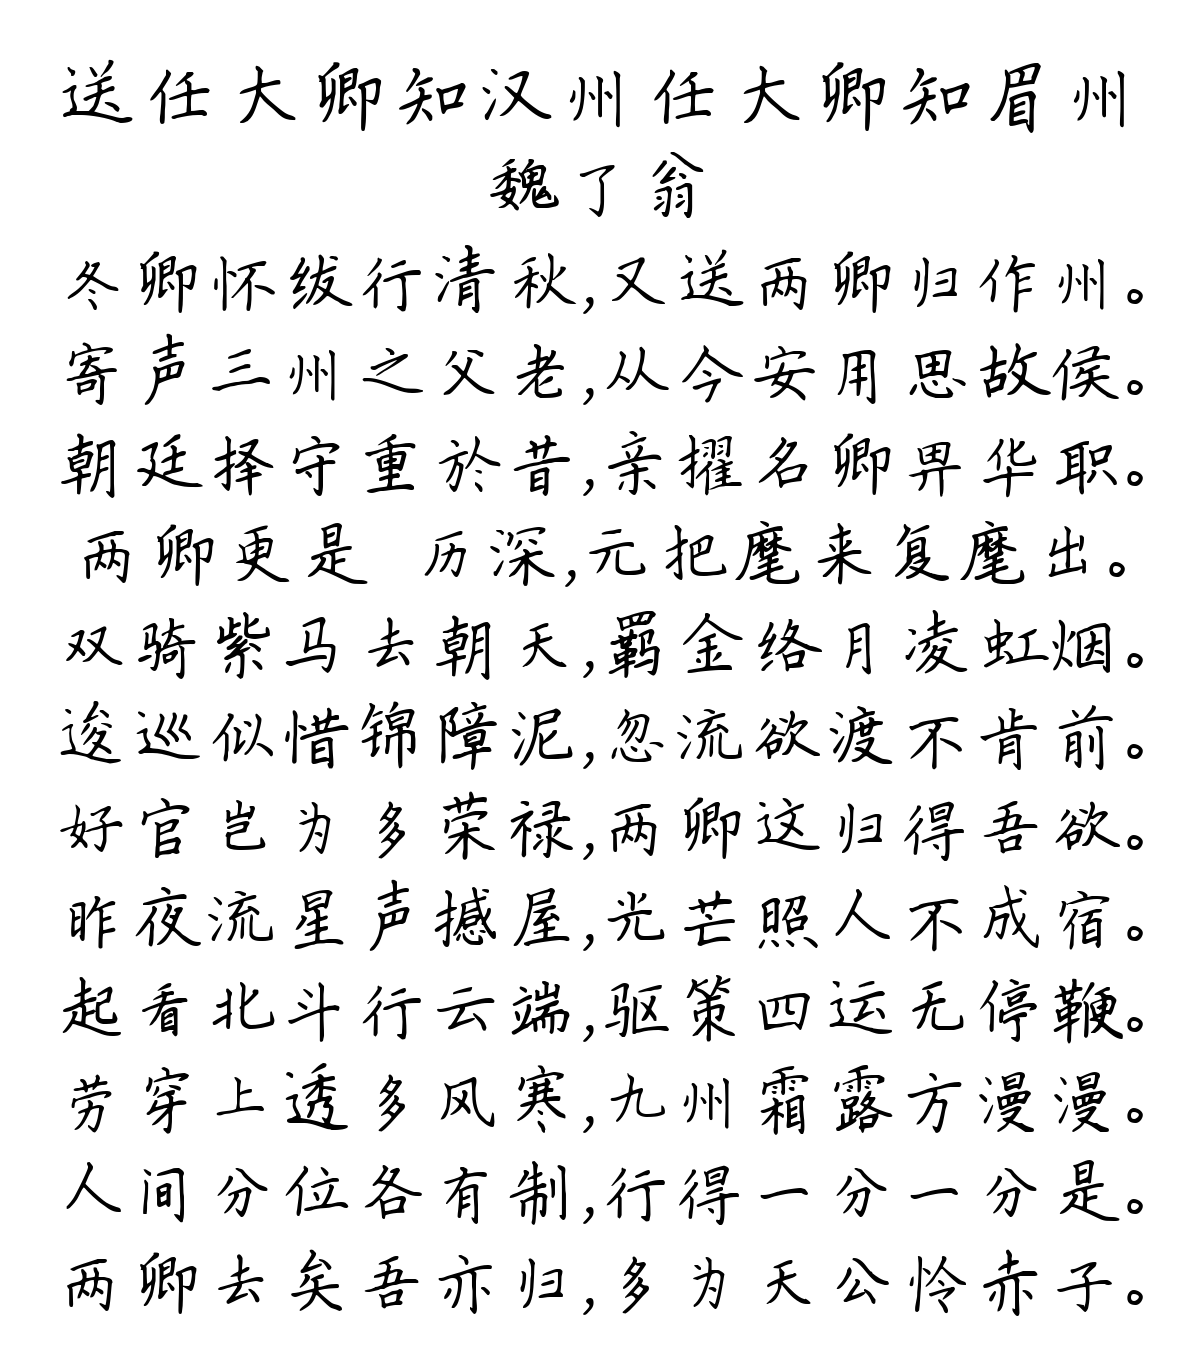 送任大卿知汉州任大卿知眉州
魏了翁
冬卿怀绂行清秋,又送两卿归作州。
寄声三州之父老,从今安用思故侯。
朝廷择守重於昔,亲擢名卿畀华职。
两卿更是 历深,元把麾来复麾出。
双骑紫马去朝天,羁金络月凌虹烟。
逡巡似惜锦障泥,忽流欲渡不肯前。
好官岂为多荣禄,两卿这归得吾欲。
昨夜流星声撼屋,光芒照人不成宿。
起看北斗行云端,驱策四运无停鞭。
劳穿上透多风寒,九州霜露方漫漫。
人间分位各有制,行得一分一分是。
两卿去矣吾亦归,多为天公怜赤子。